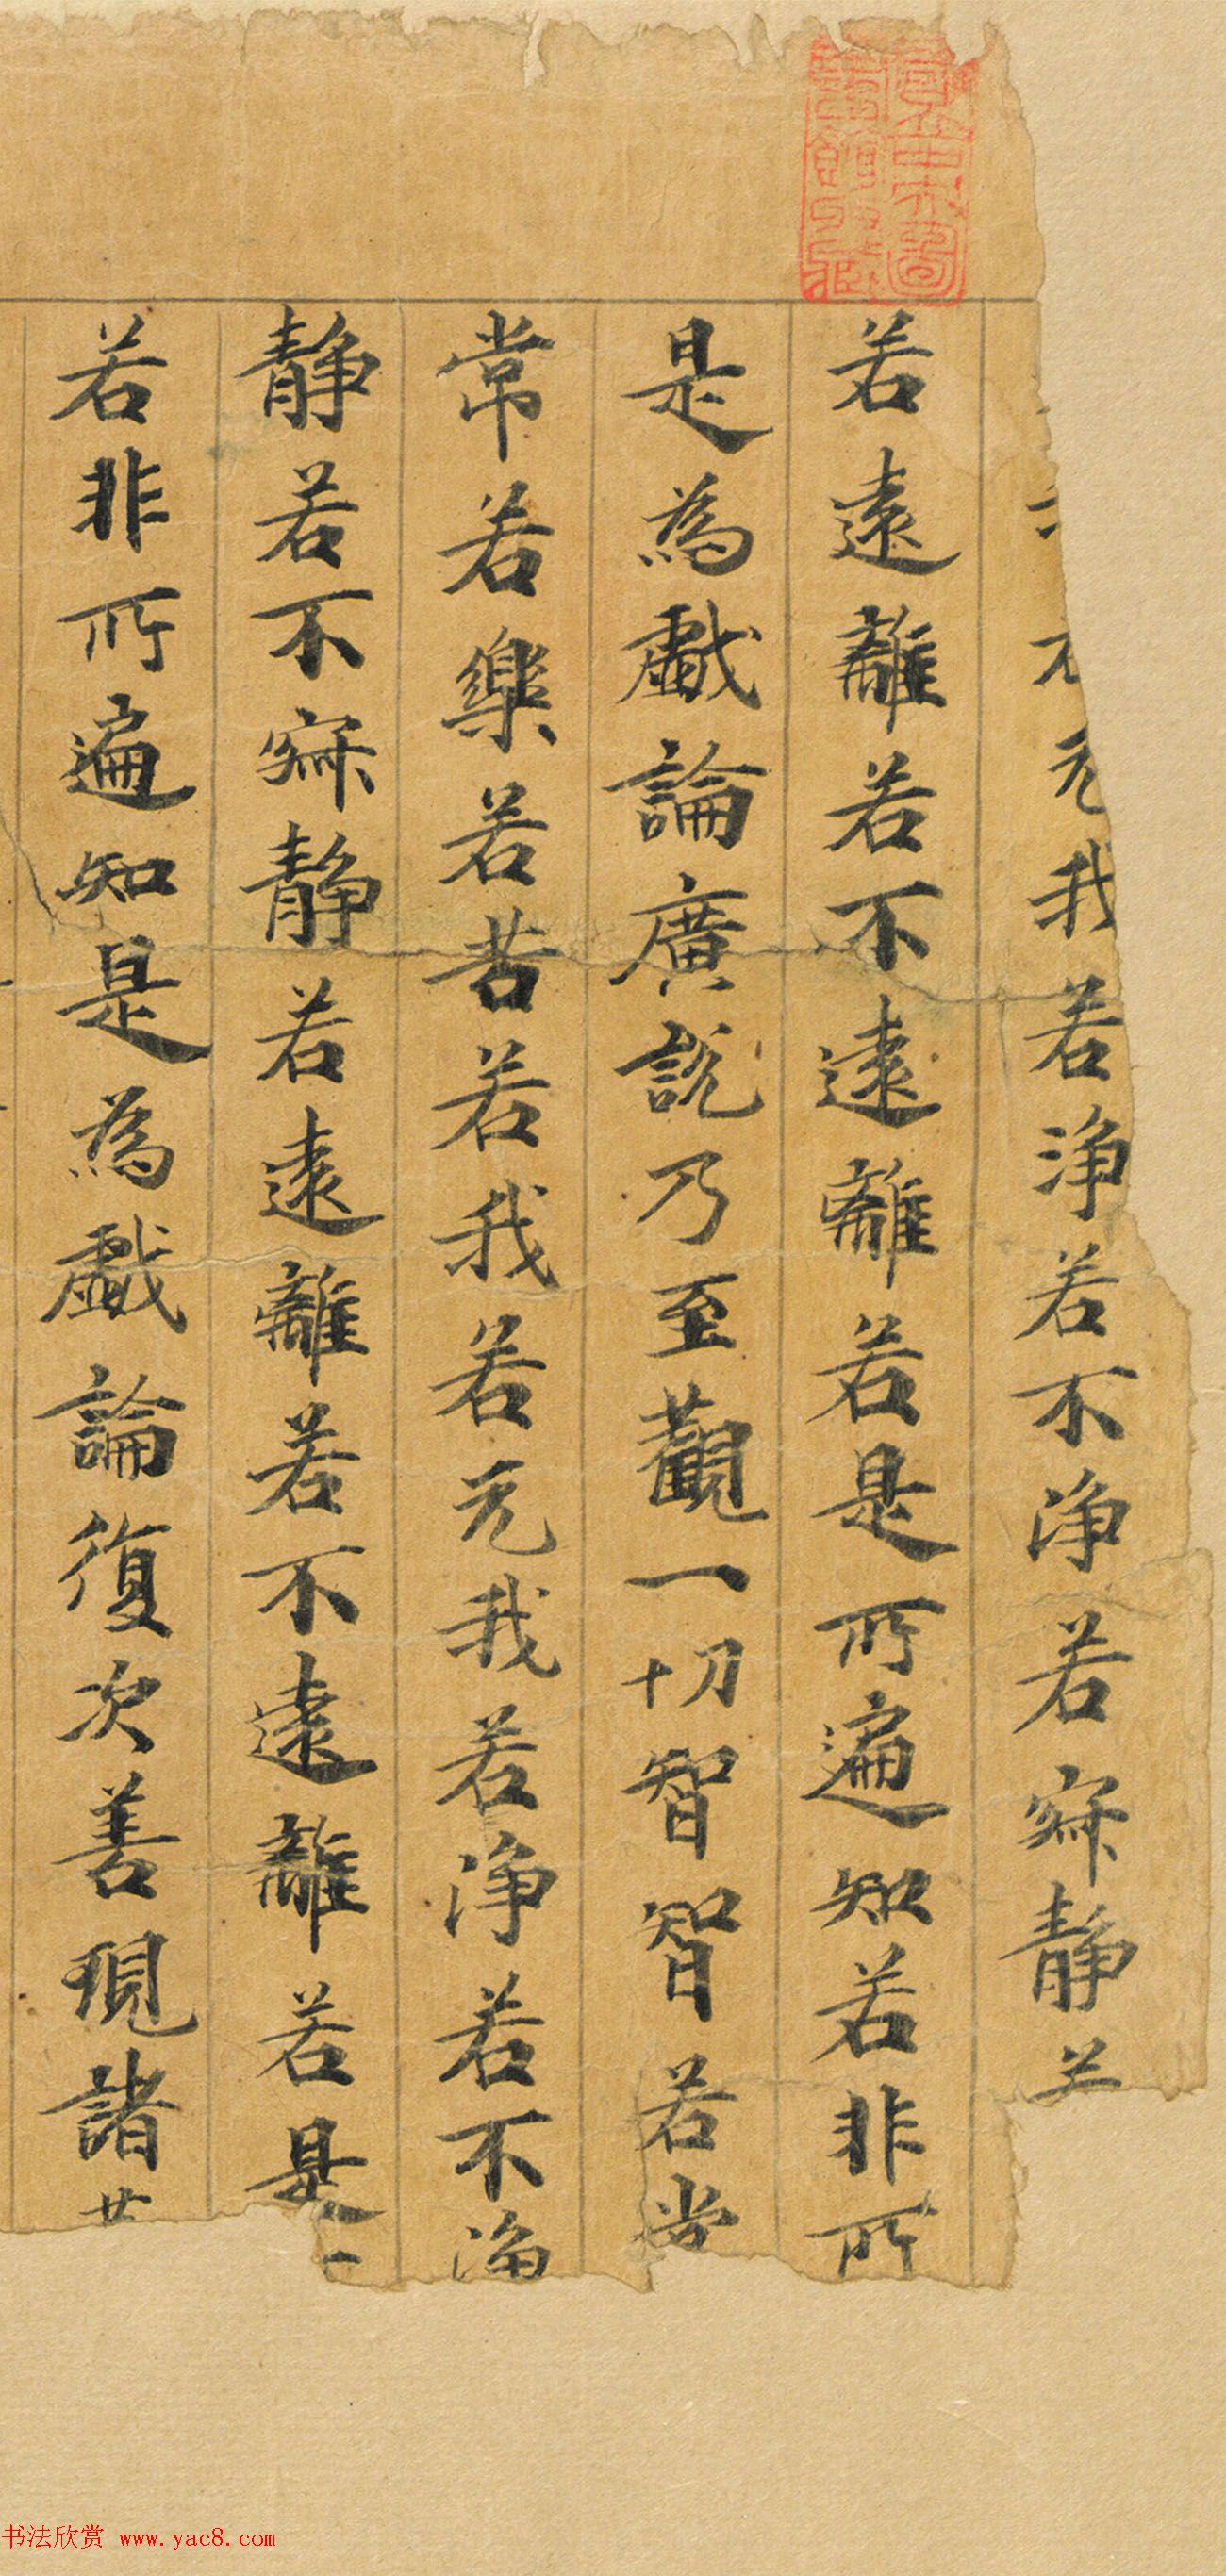 无我若浄若不浄若寂静
若遠離若不遠離若是所遍知若非所
是為戲論廣說乃至觀一切智智若常
常若樂若苦若我若无我若浄若不浄
静若不寂静若遠離若不遠離若是
若非所遍知是為戲論復次善現諸
书法欣赏 www.yac8.com